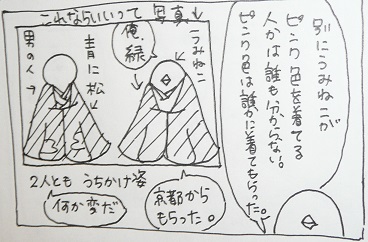 別にうみねこが
ピンク色を着てる
人かは誰も分からない。
ピンク色は誰かに着てもらった。
これならいいって写真↓
うみねこ
俺、
緑
青に松
男の人
2人とも うちかけ姿
京都から
もらった。
何か変だ